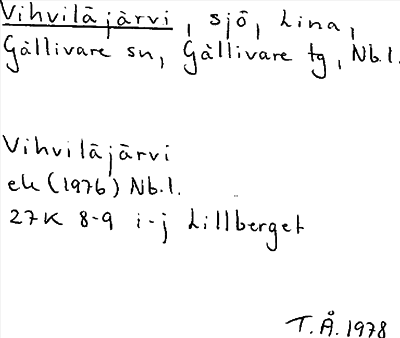 Vihviläjärvi, sjö, Lina,
Gällivare sn, Gällivare tg, Nb.l.
Vihviläjärvi
ek (1976) Nb.l.
27K 8-9 i-j Lillberget
T.Å. 1978